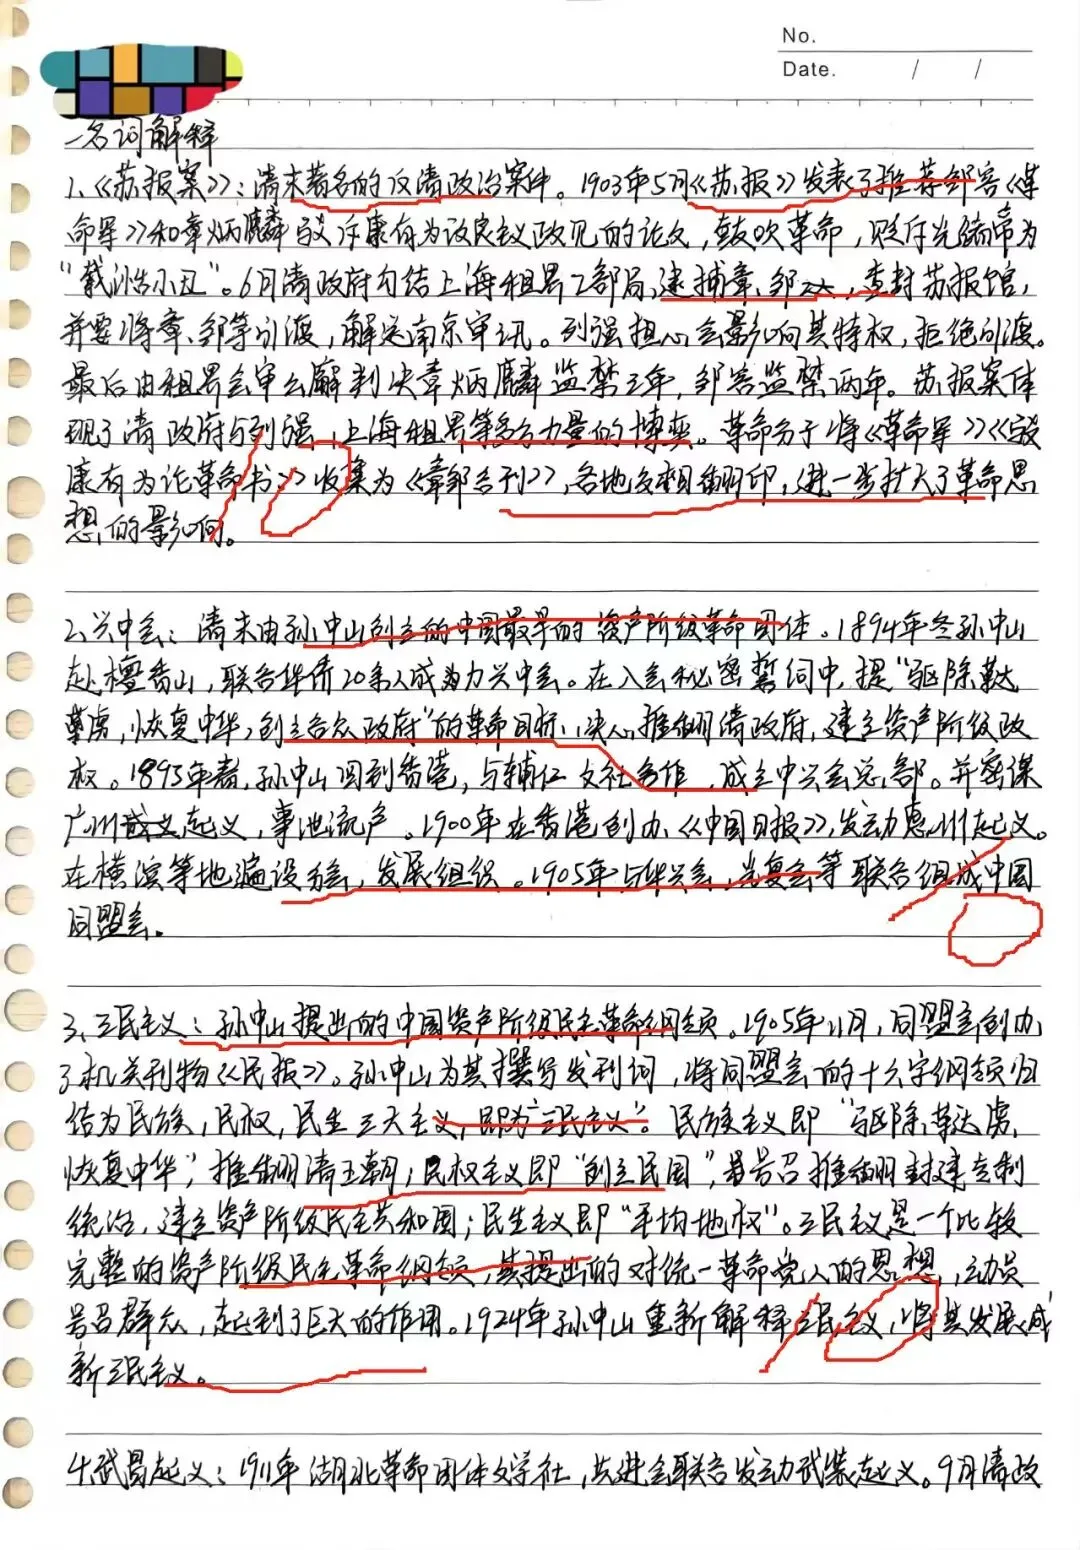 No.
Date. / /
一名词解释
1、《苏报案》：清末著名的反清政治案件。1903年5月《苏报》发表了推荐邹容《革
命军》和章炳麟驳斥康有为改良主义政见的论文，鼓吹革命，贬斥光绪帝为
“载湉小丑”。6月清政府勾结上海租界工部局，逮捕章、邹，查封苏报馆，
并要将章、邹等引渡，解送南京审讯。列强担心会影响其特权，拒绝引渡。
最后由租界会审公廨判决章炳麟监禁三年，邹容监禁两年。苏报案体
现了清政府与列强，上海租界等多方力量的博弈。革命分子将《革命军》《驳
康有为论革命书》收集为《章邹合刊》，各地多相翻印，进一步扩大了革命思
想的影响。
10
2、兴中会：清末由孙中山创立的中国最早的资产阶级革命团体。1894年冬孙中山
赴檀香山，联合华侨20余人成为力兴中会。在入会秘密誓词中，提“驱除鞑
虏，恢复中华，创立合众政府”的革命目标，决心推翻清政府，建立资产阶级政
权。1895年春，孙中山回到香港，与辅仁文社合作，成立中兴会总部。并密谋
广州起义，事泄流产。1900年在香港创办《中国日报》，发动惠州起义。
在横滨等地遍设分会，发展组织。1905年与华兴会，光复会等联合组成中国
同盟会。
10
3、三民主义：孙中山提出的中国资产阶级民主革命纲领。1905年11月，同盟会创办
了机关刊物《民报》。孙中山为其撰写发刊词，将同盟会的十六字纲领归
结为民族，民权，民生三大主义，即为“三民主义”。民族主义即“驱除鞑虏，
恢复中华”，推翻清王朝；民权主义即“创立民国”，号召推翻封建专制
统治，建立资产阶级民主共和国；民生主义即“平均地权”。三民主义是一个比较
完整的资产阶级民主革命纲领，其提出的对统一革命党人的思想，动员
号召群众，起到了巨大的作用。1924年孙中山重新解释三民主义，将其发展成
新三民主义。
10
4、武昌起义：1911年湖北革命团体文学社，共进会联合发动武装起义。9月清政